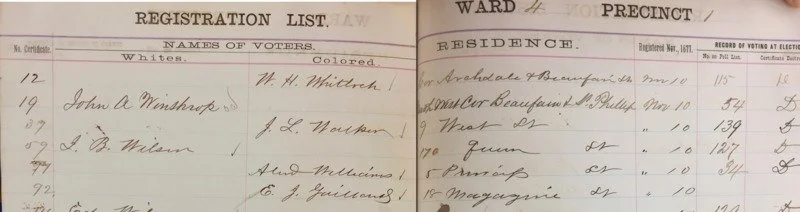 REGISTRATION LIST.
No. Certificate.
NAMES OF VOTERS.
Whites.
Colored.
12 W. H. Whittock
19 John A Winshrop
37 J. L. Walker
59 I. B. Wilson
Williams
92 E. J. Gaillard
WARD 4 PRECINCT 1
RESIDENCE.
Registered Nov., 1877.
RECORD OF VOTING AT ELECTIO
No. on Poll List.
Certificate Destro
Cor Archdale & Beaufain St Nov 10 115
West Cor Beaufain & St Phillip Nov 10 54 D
9 West St " 10 139 D
170 Queen St " 10 127 D
5 Princess St " 10 34 D
18 Magazine St " 10